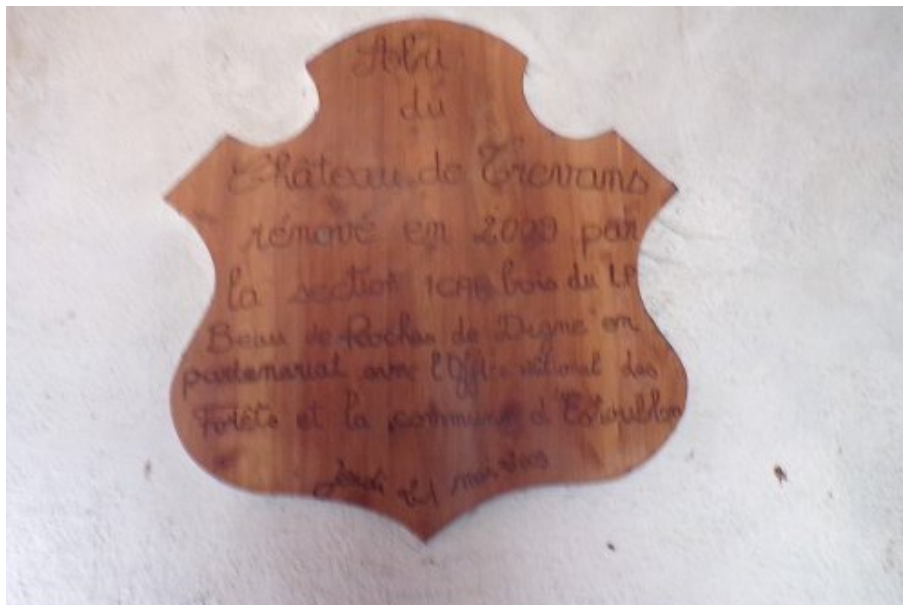 Abri
du
Château de Trevans
rénové en 2009 par
la section 1CAP bois du LP
Beau de Rochas de Digne en
partenariat avec l'Office national des
Forêts et la commune d'Estoublon
jeudi mai 2009